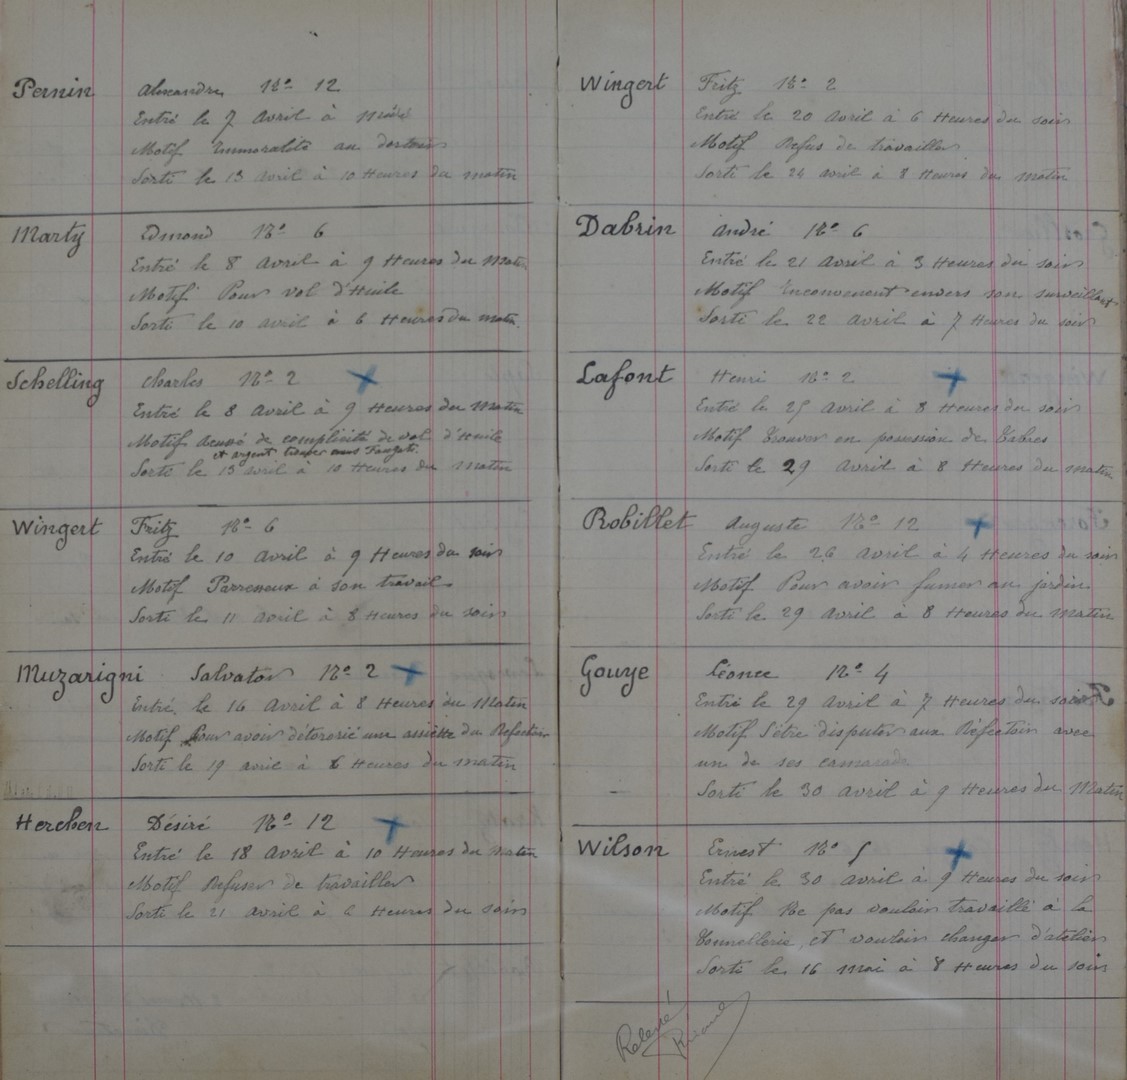 Pernin Alexandre No 12
Entré le 7 Avril à Midi
Motif Immoralité au dortoir
Sorti le 13 avril à 10 Heures du matin
Marty Edmond No 6
Entré le 8 Avril à 9 Heures du Matin
Motif Pour vol d'Huile
Sorti le 10 avril à 6 Heures du matin.
Schelling Charles No 2
Entré le 8 Avril à 9 Heures du Matin
Motif acusé de complicité de vol d'Huile
et argent trouver
Sorti le 13 avril à 10 Heures du matin
Wingert Fritz No 6
Entré le 10 Avril à 9 Heures du soir
Motif Parreneux à son travail
Sorti le 11 avril à 8 Heures du soir
Muzarigni Salvator No 2
Entré le 16 Avril à 8 Heures du Matin
Motif Pour avoir détorerié une assiette du Refectoir
Sorti le 19 avril à 6 Heures du matin
Herchen Désiré No 12
Entré le 18 Avril à 10 Heures du Matin
Motif Refuser de travailler
Sorti le 21 avril à 6 Heures du soir
Wingert Fritz No 2
Entré le 20 Avril à 6 Heures du soir
Motif Refus de travailler
Sorti le 24 avril à 8 Heures du Matin
Dabrin André No 6
Entré le 21 Avril à 3 Heures du soir
Motif Inconvenent envers son surveillant
Sorti le 22 Avril à 7 Heures du soir
Lafont Henri No 2
Entré le 25 Avril à 8 Heures du soir
Motif Trouver en posession de Tabres
Sorti le 29 Avril à 8 Heures du matin
Robillet Auguste No 12
Entré le 26 avril à 4 Heures du soir
Motif Pour avoir fumer au jardin
Sorti le 29 Avril à 8 Heures du Matin
Gouye Léonce No 4
Entré le 29 Avril à 7 Heures du soir
Motif S'être disputer aux Réfectoir avec
un de ses camarade
Sorti le 30 Avril à 9 Heures du Matin
Wilson Ernest No 5
Entré le 30 avril à 9 Heures du soir
Motif Ne pas vouloir travaillé à la
Tonnellerie, et vouloir changer d'atelier
Sorti le 16 mai à 8 Heures du soir